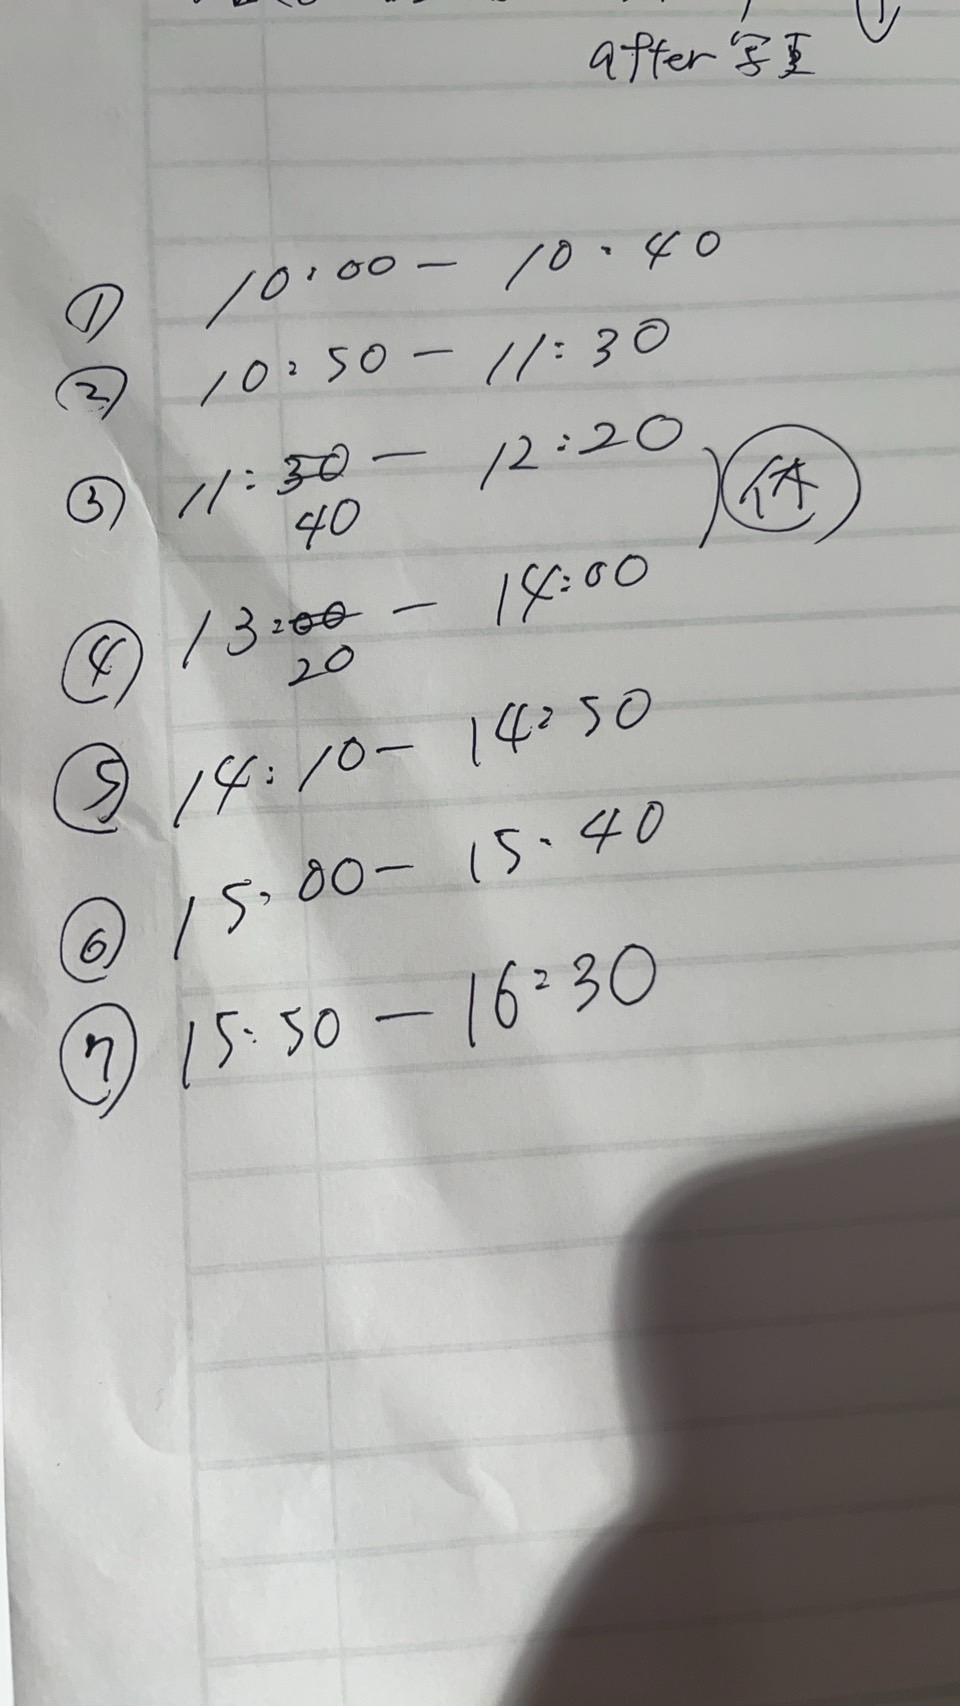 after写真
① 10:00 - 10:40
② 10:50 - 11:30
③ 11:30 - 12:20
40
休
④ 13:00 - 14:00
20
⑤ 14:10 - 14:50
⑥ 15:00 - 15:40
⑦ 15:50 - 16:30